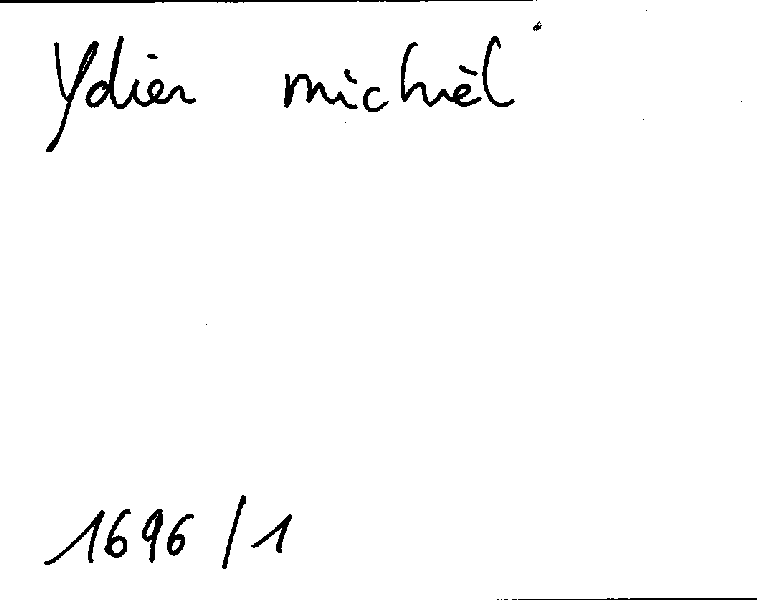 Ydier michièl
1696/1